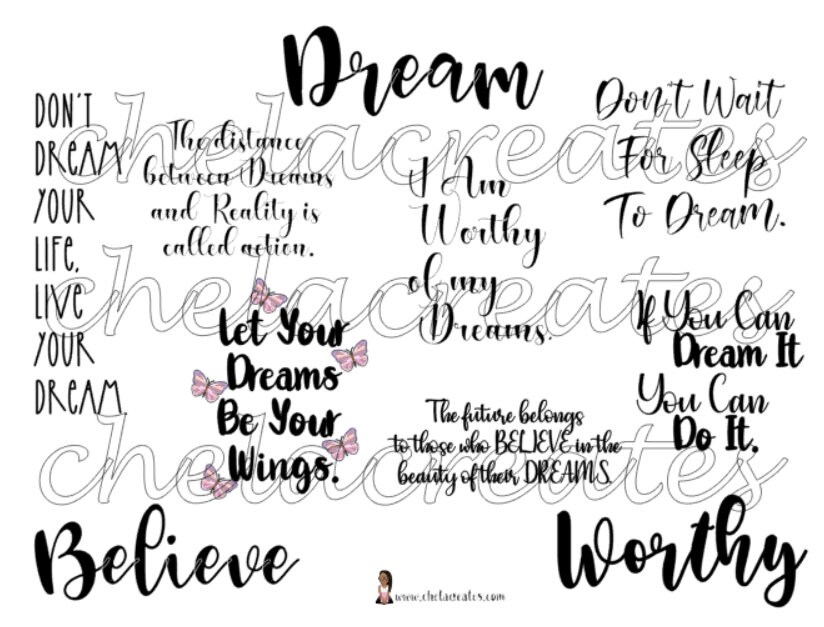 Dream
DON'T
DREAM
YOUR
LIFE,
LIVE
YOUR
DREAM
The distance
between Dreams
and Reality is
called action.
I Am
Worthy
of my
Dreams.
Don't Wait
For Sleep
To Dream.
Let Your
Dreams
Be Your
Wings.
If You Can
Dream It
You Can
Do It.
The future belongs
to those who BELIEVE in the
beauty of their DREAMS.
Believe
Worthy
www.chelacreates.com
chelacreates
chelacreates
chelacreates